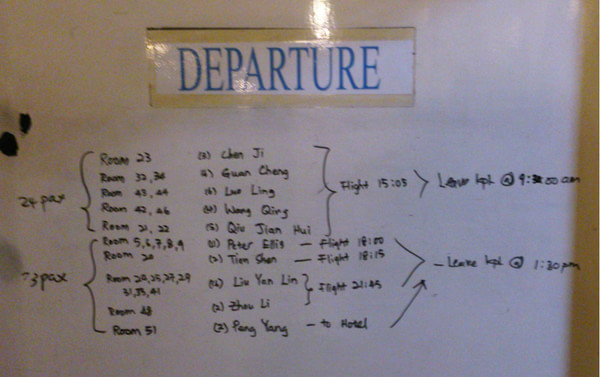 DEPARTURE
Room 23 (3) Chen Ji
Room 32, 34 (4) Guan Cheng
24 pax Room 43, 44 (6) Luo Ling Flight 15:05 Leave kpl @ 9:30:00 am
Room 42, 46 Wang Qing
Room 21, 22 Qiu Jian Hui
Room 5,6,7,8,9 (11) Peter Ellis — Flight 18:00
Room 20 (2) Tian Shen — Flight 18:15
pax — Leave kpl @ 1:30 pm
Room 24,25,27,29 Liu Yan Lin Flight 21:45
31,33,41
Room 48 (2) Zhou Li
Room 51 (2) Pang Yang — to Hotel